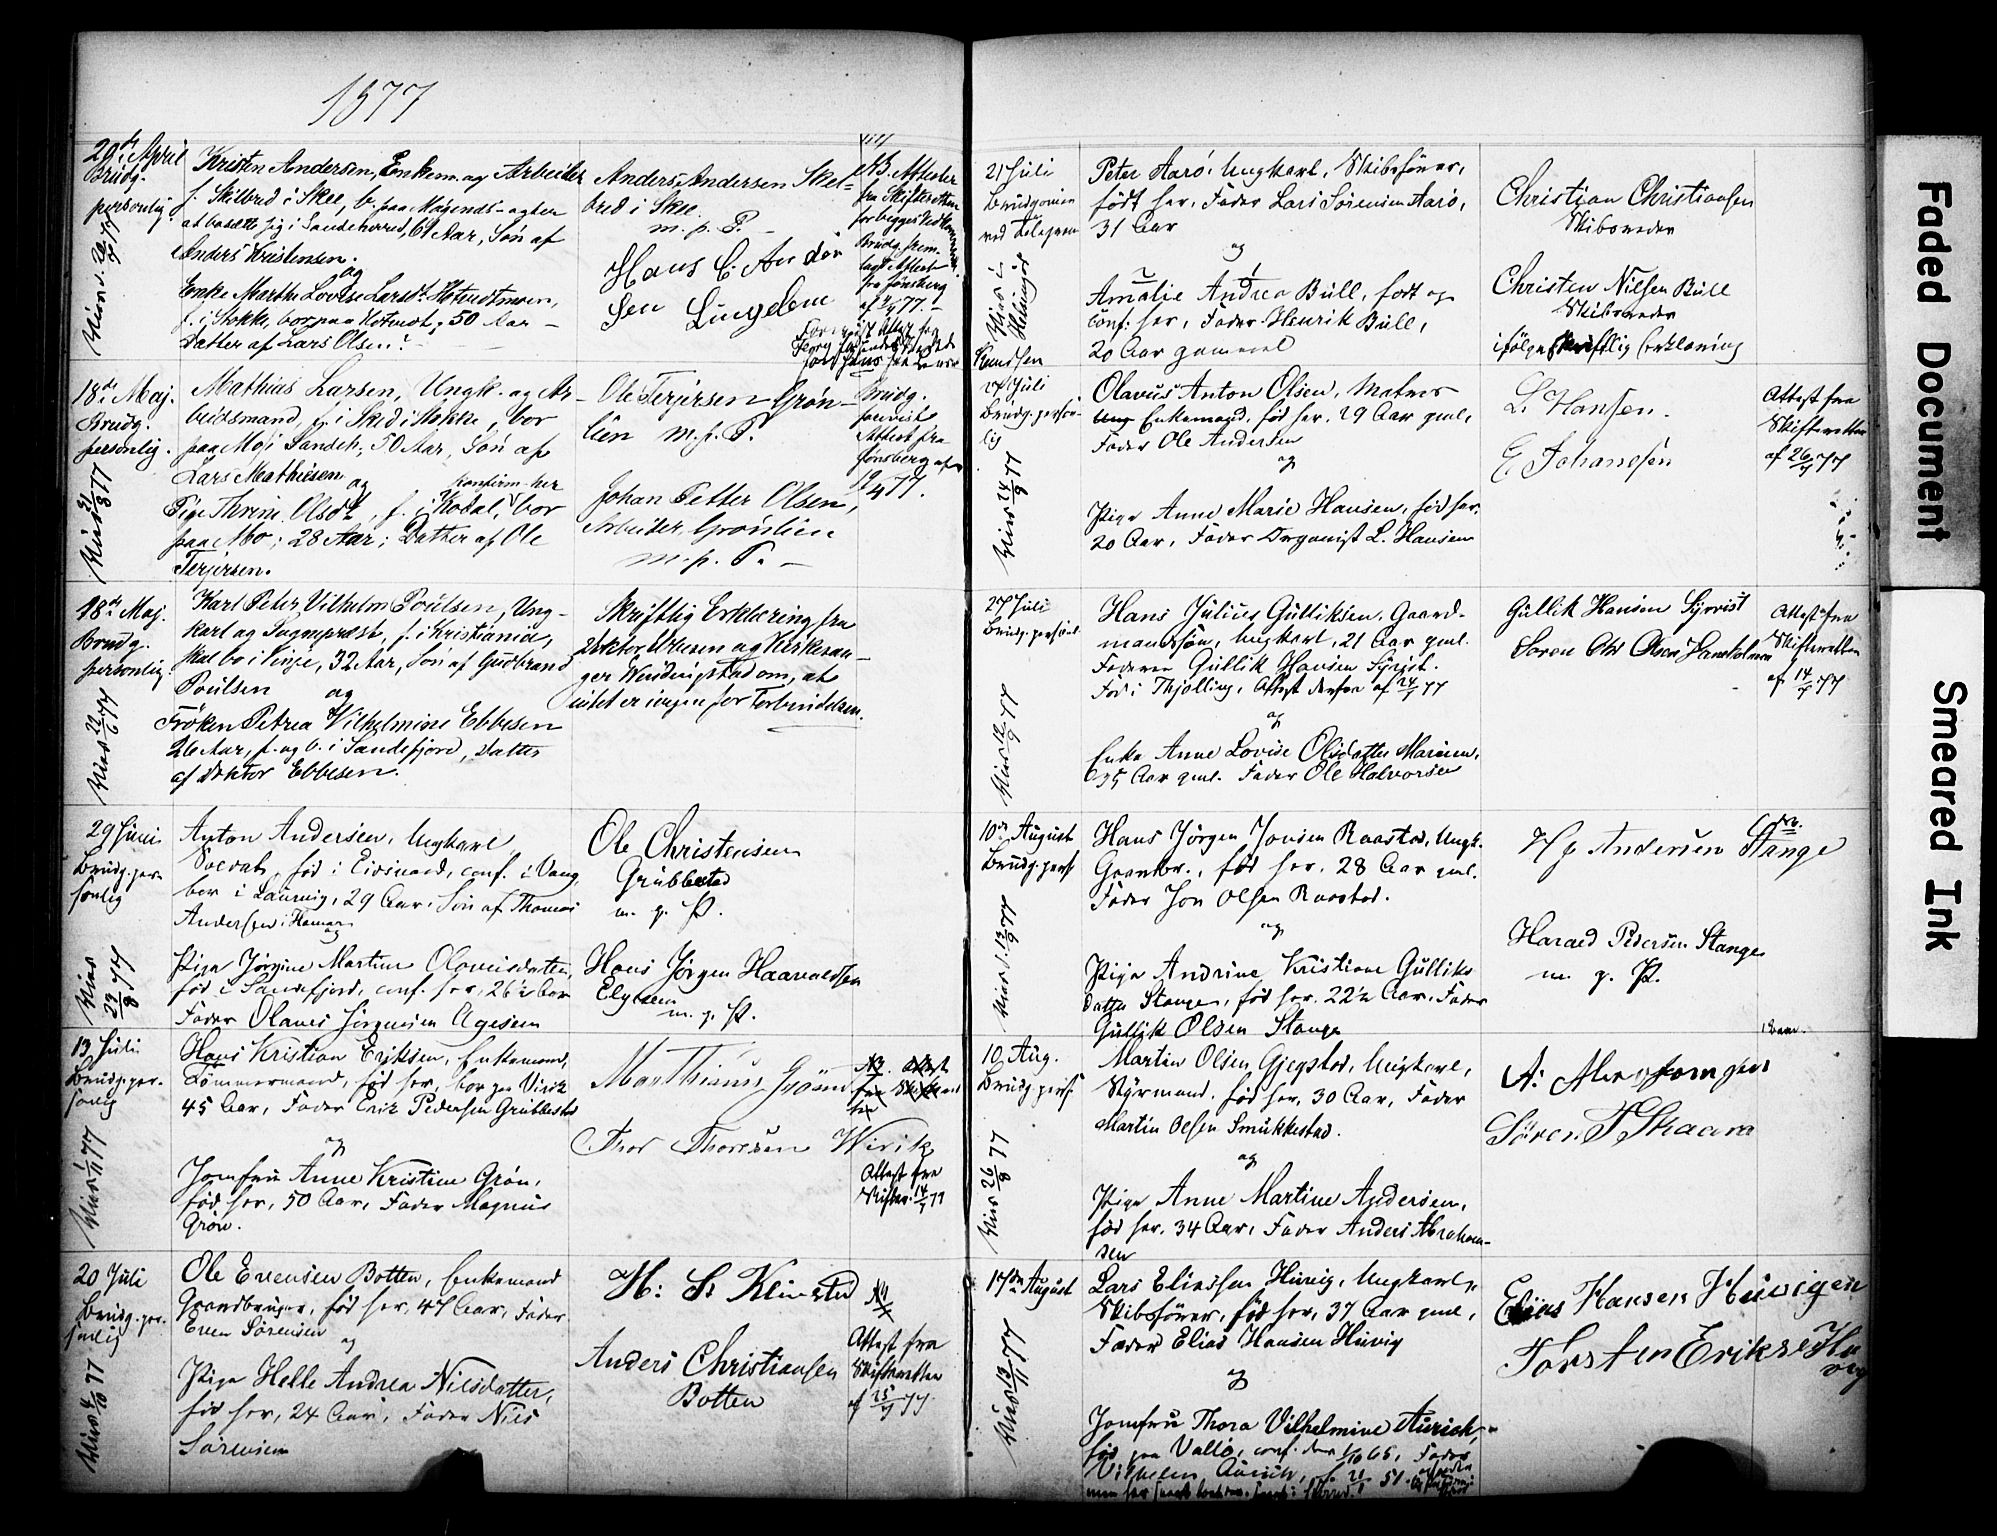 1877
29de April
Brudg.
personlig.
Kristen Andersen, Enkem. og Arbeider
f. Skilbred i Skee, b. paa Mogends- agter
at bosætte sig i Sandeherred, 61 Aar, Søn af
Anders Kristensen.
og
Enke Marthe Lovise Larsdt.
f. i Stokke, bor paa 50 Aar
Datter af Lars Olsen.
Anders Andersen Skel-
bred i Skee.
m. p. P.
Hans C. Ander
sen Lingelem
NB. Attester
fra Skifteretten
for begges Vedkommende.
Brudg. frem-
lagt Attest
fra Jønsberg
18de Maj.
Brudg.
personlig.
Viet 77
Mathias Larsen, Ungk. og Ar-
beidsmand, f. i Skee i Stokke, bor
paa Mo i Sandeh., 50 Aar, Søn af
Lars Mathiesen
og
konfirm. her
Pige Thrine Olsdt., f. i Kodal, bor
paa Mo; 28 Aar; Datter af Ole
Terjersen.
Ole Terjersen Grøn-
lien m. p. P.
Johan Petter Olsen,
Arbeider, Grønlien
m. p. P.
Brudg.
forevist
Attest fra
Jønsberg af
18de Maj.
Brudg.
personlig.
Karl Peter Vilhelm Poulsen, Ung-
karl og Sognepræst, f. i Kristiania,
skal bo i Vinje, 32 Aar, Søn af Gudbrand
Poulsen og
Frøken Petrea Vilhelmine Ebbesen
26 Aar, f. og b. i Sandefjord, Datter
af Doktor Ebbesen.
Skriftlig Erklæring fra
Doktor Ebbesen og Kirkesan-
ger Wendingstad om, at
intet er i veien for Forbindelsen.
29 Juni
Brudg. per-
sonlig
Viet
29/8 77
Anton Andersen, Ungkarl
Soldat, fød i Eidsvold, conf. i Vang,
bor i Laurvig, 29 Aar. Søn af Thomas
Andersen i Hamar
og
Pige Jørgine Martine Olavesdatter,
fød i Sandefjord, conf. her, 26½ Aar
Fader Olaves Jørgensen Agesen
Ole Christensen
Grubbestad
m. p. P.
Hans Jørgen Haavaldsen
m. p. P.
13 Juli
Brudg. per-
sonlig
Hans Kristian Eriksen, Enkemand,
Tømmermand, fød her, bor paa Virik
45 Aar, Fader Erik Pedersen Grubbestad
og
Jomfru Anne Kristine Grøn,
fød her, 50 Aar, Fader Magnus
Grøn.
Matthias Grøn
Thor Thoresen Wirik
Attest fra
Skifter. 14/7 77
20 Juli
Brudg. per-
sonlig
Viet 4/10 77
Ole Evensen Botten, Enkemand
Gaardbruger, fød her, 47 Aar, Fader
Even Sørensen og
Pige Helle Andrea Nilsdatter,
fød her, 24 Aar, Fader Nils
Sørensen
H. S. Klinestad
Anders Christiansen
Botten
Attest fra
Skifteretten
af 77
21 Juli
Brudgommen
ved Telegram
Viet i
Helsingør
Peter Aarø, Ungkarl, Skibsfører,
født her, Fader Lars Sørensen Aarø,
31 Aar
og
Amalie Andrea Bull, født og
conf. her, Fader Henrik Bull,
20 Aar gammel
Christian Christiansen
Skibsreder
Christen Nilsen Bull
Skibsreder
ifølge skriftlig Erklæring
27 Juli
Brudg. person-
lig
Viet 24/9 77
Olavus Anton Olsen, Matros
Enkemand, fød her, 29 Aar gml.
Fader Ole Andersen
og
Pige Anne Marie Hansen, fød her.
20 Aar, Fader Organist L. Hansen
L. Hansen.
E Johansen
Attest fra
Skifteretten
af 26/7 77
27 Juli
Brudg. personl.
Hans Julius Gulliksen, Gaard-
mandssøn, Ungkarl, 21 Aar gml.
Faderen Gullik Hansen
Fød i Thjølling, Attest derfra af 24/7 77
og
Enke Anne Lovise Olsdatter
35 Aar gml. Fader Ole Halvorsen
Gullik Hansen
Soren Olsen
Attest fra
Skifteretten
af 14/7 77
10de August
Brudg. pers.
Hans Jørgen Jonsen Raastad, Ungk.
Gaardbr., fød her, 28 Aar gml.
Fader Jon Olsen Raastad.
og
Pige Andrine Kristiane Gulliks
datter Stange, fød her. 22½ Aar, Fader
Gullik Olsen Stange
Hp Andersen Stange
Harald Pedersen Stange
m. p. P.
10 Aug.
Brudg. pers.
Viet 26/8 77
Martin Olsen Gjegstad, Ungkarl,
Styrmand, fød her, 30 Aar, Fader
Martin Olsen Smukkestad.
og
Pige Anne Martine Andersen,
fød her, 34 Aar, Fader Anders Abraham-
sen
Søren T Skaara
17de August
Viet 13/11 77
Lars Eliassen Huvig, Ungkarl,
Skibsfører, fød her, 37 Aar gml,
Fader Elias Hansen Huvig
og
Jomfru Thora Vilhelmine Aurich,
fød paa Vallø, conf. den 1/10 65, Fader
Vilhelm Aurich,
Elias Hansen Huvigen
Torsten Eriksen Hu
vig
Faded Document
Smeared Ink